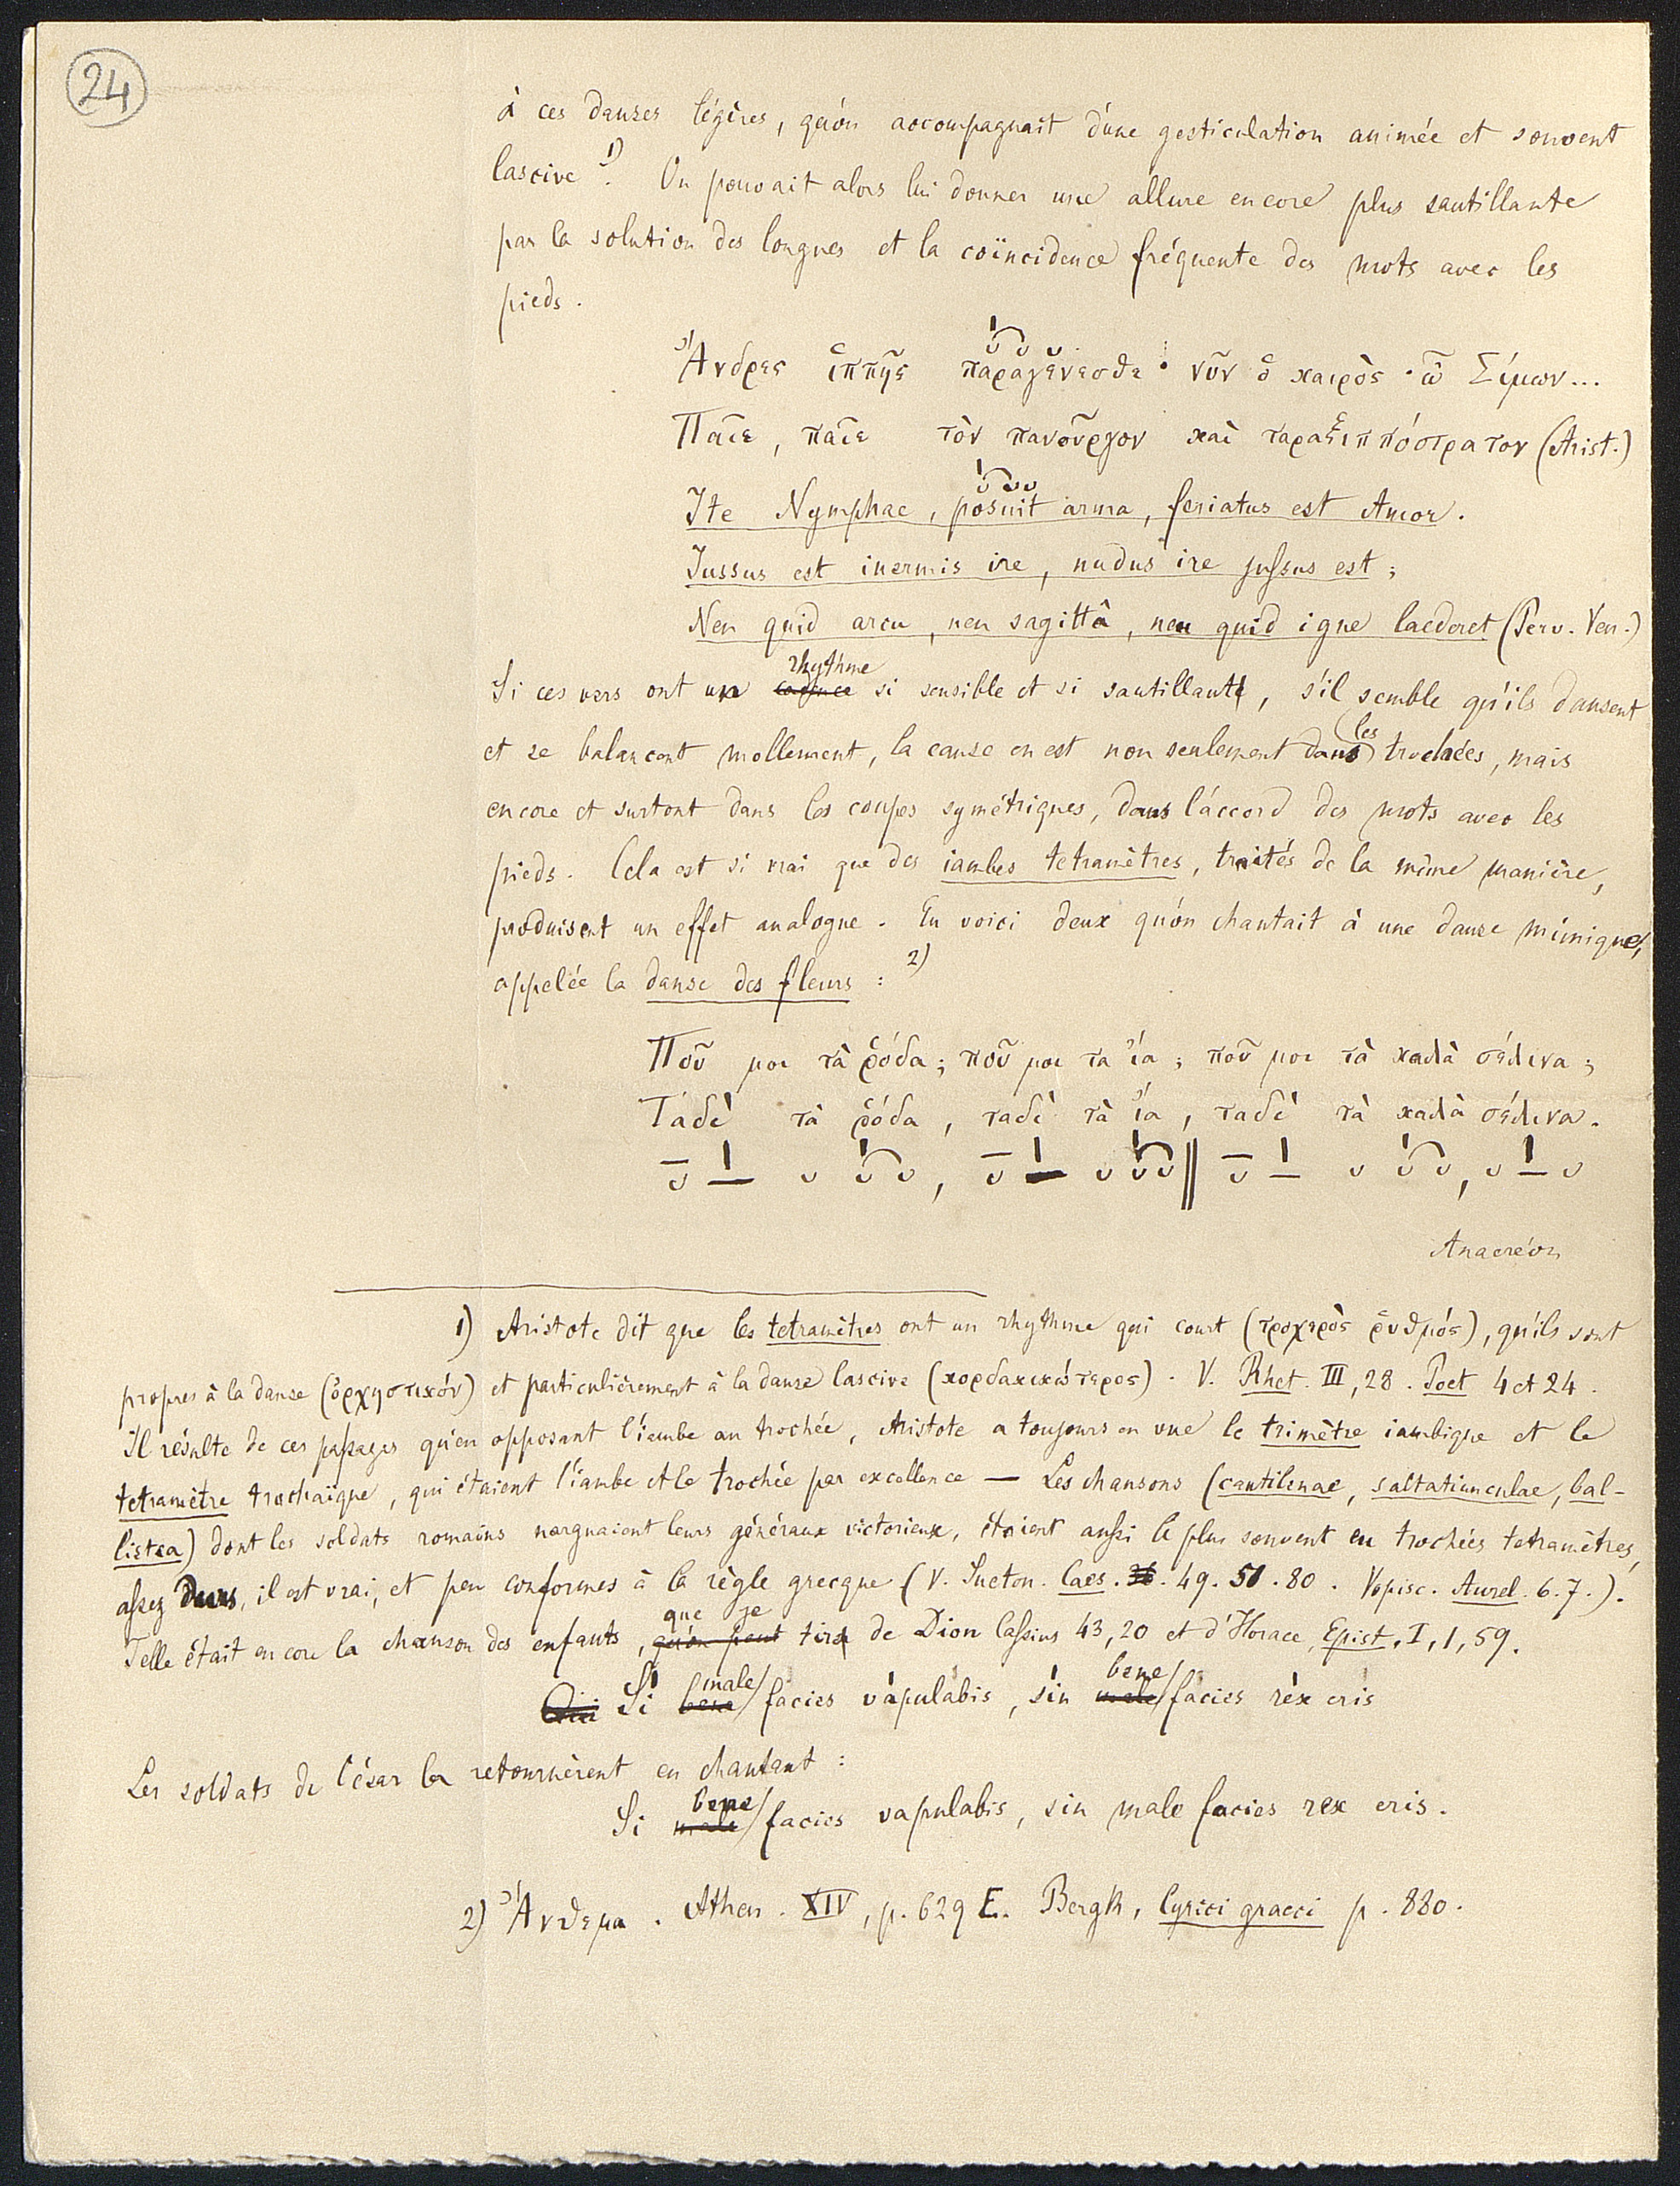 24
à ces danses légères, qu'on accompagnait d'une gesticulation animée et souvent
lascive 1). On pouvait alors lui donner une allure encore plus sautillante
par la solution des longues et la coïncidence fréquente des mots avec les
pieds.
Ἄνδρες ἱππῆς παραγένεσθε · νῦν ὁ καιρὸς · ὦ Σίμων...
Παῖε, παῖε τὸν πανοῦργον καὶ ταραξιππόστρατον (Arist.)
Ite Nymphae, posuit arma, feriatus est Amor.
Jussus est inermis ire, nudus ire jussus est ;
Neu quid arcu, neu sagittâ, neu quid igne laederet (Perv. Ven.)
Si ces vers ont un cadence rhythme si sensible et si sautillant, s'il semble qu'ils dansent
et se balancent mollement, la cause en est non seulement dans les trochées, mais
encore et surtout dans les coupes symétriques, dans l'accord des mots avec les
pieds. Cela est si vrai que des iambes tetramètres, traités de la même manière,
produisent un effet analogue. En voici deux qu'on chantait à une danse mimique,
appelée la danse des fleurs : 2)
Ποῦ μοι τὰ ῥόδα ; ποῦ μοι τα ἴα ; ποῦ μοι τὰ καλὰ σέλινα ;
Ταδὶ τὰ ῥόδα, ταδὶ τὰ ἴα, ταδὶ τὰ καλὰ σέλινα.
⏓ – ⏑ ⏑⏑, ⏓ – ⏑ ⏑⏑ || ⏓ – ⏑ ⏑⏑, ⏑ – ⏑
Anacréon
1) Aristote dit que les tetramètres ont un rhythme qui court (τροχερὸς ῥυθμός), qu'ils sont
propres à la danse (ὀρχηστικόν) et particulièrement à la danse lascive (κορδακικώτερος). V. Rhet. III, 28. Poet 4 et 24.
Il résulte de ces passages qu'en opposant l'iambe au trochée, Aristote a toujours en vue le trimètre iambique et le
tetramètre trochaïque, qui étaient l'iambe et le trochée par excellence — Les chansons (cantilenae, saltatiunculae, bal-
listea) dont les soldats romains narguaient leurs généraux victorieux, étaient aussi le plus souvent en trochées tetramètres,
assez durs, il est vrai, et peu conformes à la règle grecque (V. Sueton. Caes. 49. 51. 80. Vopisc. Aurel. 6. 7.).
Telle était encore la chanson des enfants, qu'on peut que je tire de Dion Cassius 43,20 et d'Horace, Epist. I, 1, 59.
Qui Si bene male facies vàpulàbis, sìn male bene facies rèx eris
Les soldats de César la retournèrent en chantant :
Si male bene facies vapulabis, sin male facies rex eris.
2) Ἄνθεμα. Athen. XIV, p. 629 E. Bergk, lyrici graeci p. 880.